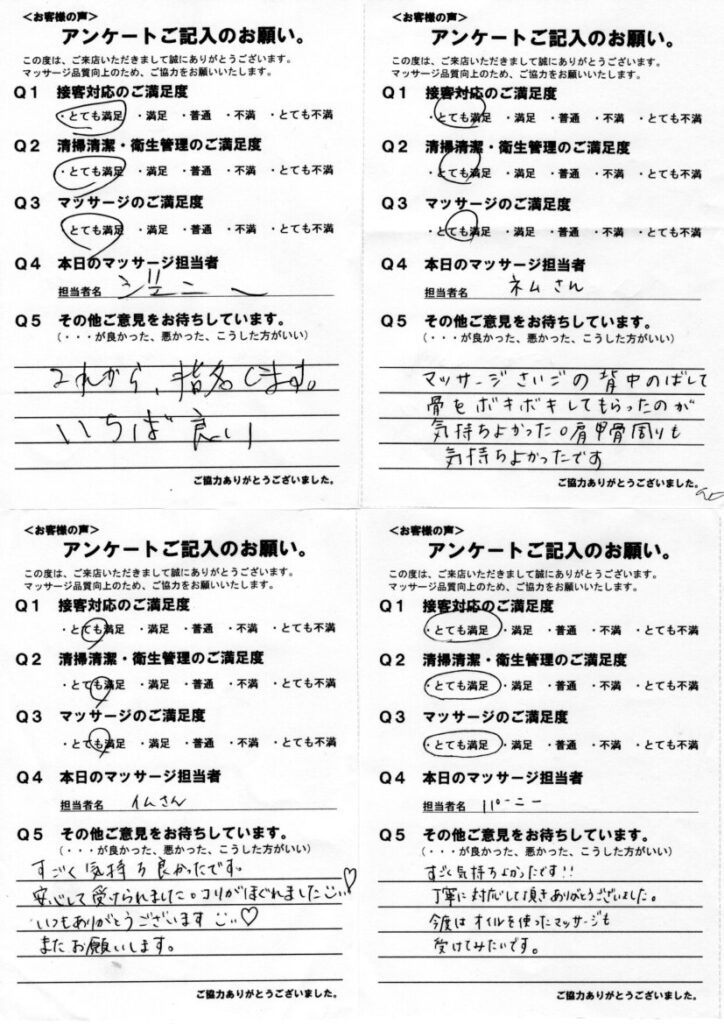 ＜お客様の声＞
アンケートご記入のお願い。
この度は、ご来店いただきまして誠にありがとうございます。
マッサージ品質向上のため、ご協力をお願いいたします。
Q1 接客対応のご満足度
・とても満足 ・満足 ・普通 ・不満 ・とても不満
Q2 清掃清潔・衛生管理のご満足度
・とても満足 ・満足 ・普通 ・不満 ・とても不満
Q3 マッサージのご満足度
・とても満足 ・満足 ・普通 ・不満 ・とても不満
Q4 本日のマッサージ担当者
担当者名 ジェニー
Q5 その他ご意見をお待ちしています。
（・・・が良かった、悪かった、こうした方がいい）
これから、指名します。
いちば 良い
ご協力ありがとうございました。
＜お客様の声＞
アンケートご記入のお願い。
この度は、ご来店いただきまして誠にありがとうございます。
マッサージ品質向上のため、ご協力をお願いいたします。
Q1 接客対応のご満足度
・とても満足 ・満足 ・普通 ・不満 ・とても不満
Q2 清掃清潔・衛生管理のご満足度
・とても満足 ・満足 ・普通 ・不満 ・とても不満
Q3 マッサージのご満足度
・とても満足 ・満足 ・普通 ・不満 ・とても不満
Q4 本日のマッサージ担当者
担当者名 ネムさん
Q5 その他ご意見をお待ちしています。
（・・・が良かった、悪かった、こうした方がいい）
マッサージさいごの背中のばして
骨をボキボキしてもらったのが
気持ちよかった。肩甲骨周りも
気持ちよかったです
ご協力ありがとうございました。
＜お客様の声＞
アンケートご記入のお願い。
この度は、ご来店いただきまして誠にありがとうございます。
マッサージ品質向上のため、ご協力をお願いいたします。
Q1 接客対応のご満足度
・とても満足 ・満足 ・普通 ・不満 ・とても不満
Q2 清掃清潔・衛生管理のご満足度
・とても満足 ・満足 ・普通 ・不満 ・とても不満
Q3 マッサージのご満足度
・とても満足 ・満足 ・普通 ・不満 ・とても不満
Q4 本日のマッサージ担当者
担当者名 イムさん
Q5 その他ご意見をお待ちしています。
（・・・が良かった、悪かった、こうした方がいい）
すごく気持ち良かったです。
安心して受けられました。コリがほぐれました♡
いつもありがとうございます♡
またお願いします。
ご協力ありがとうございました。
＜お客様の声＞
アンケートご記入のお願い。
この度は、ご来店いただきまして誠にありがとうございます。
マッサージ品質向上のため、ご協力をお願いいたします。
Q1 接客対応のご満足度
・とても満足 ・満足 ・普通 ・不満 ・とても不満
Q2 清掃清潔・衛生管理のご満足度
・とても満足 ・満足 ・普通 ・不満 ・とても不満
Q3 マッサージのご満足度
・とても満足 ・満足 ・普通 ・不満 ・とても不満
Q4 本日のマッサージ担当者
担当者名 パーニー
Q5 その他ご意見をお待ちしています。
（・・・が良かった、悪かった、こうした方がいい）
すごく気持ちよかったです!!
丁寧に対応して頂きありがとうございました。
今度はオイルを使ったマッサージも
受けてみたいです。
ご協力ありがとうございました。